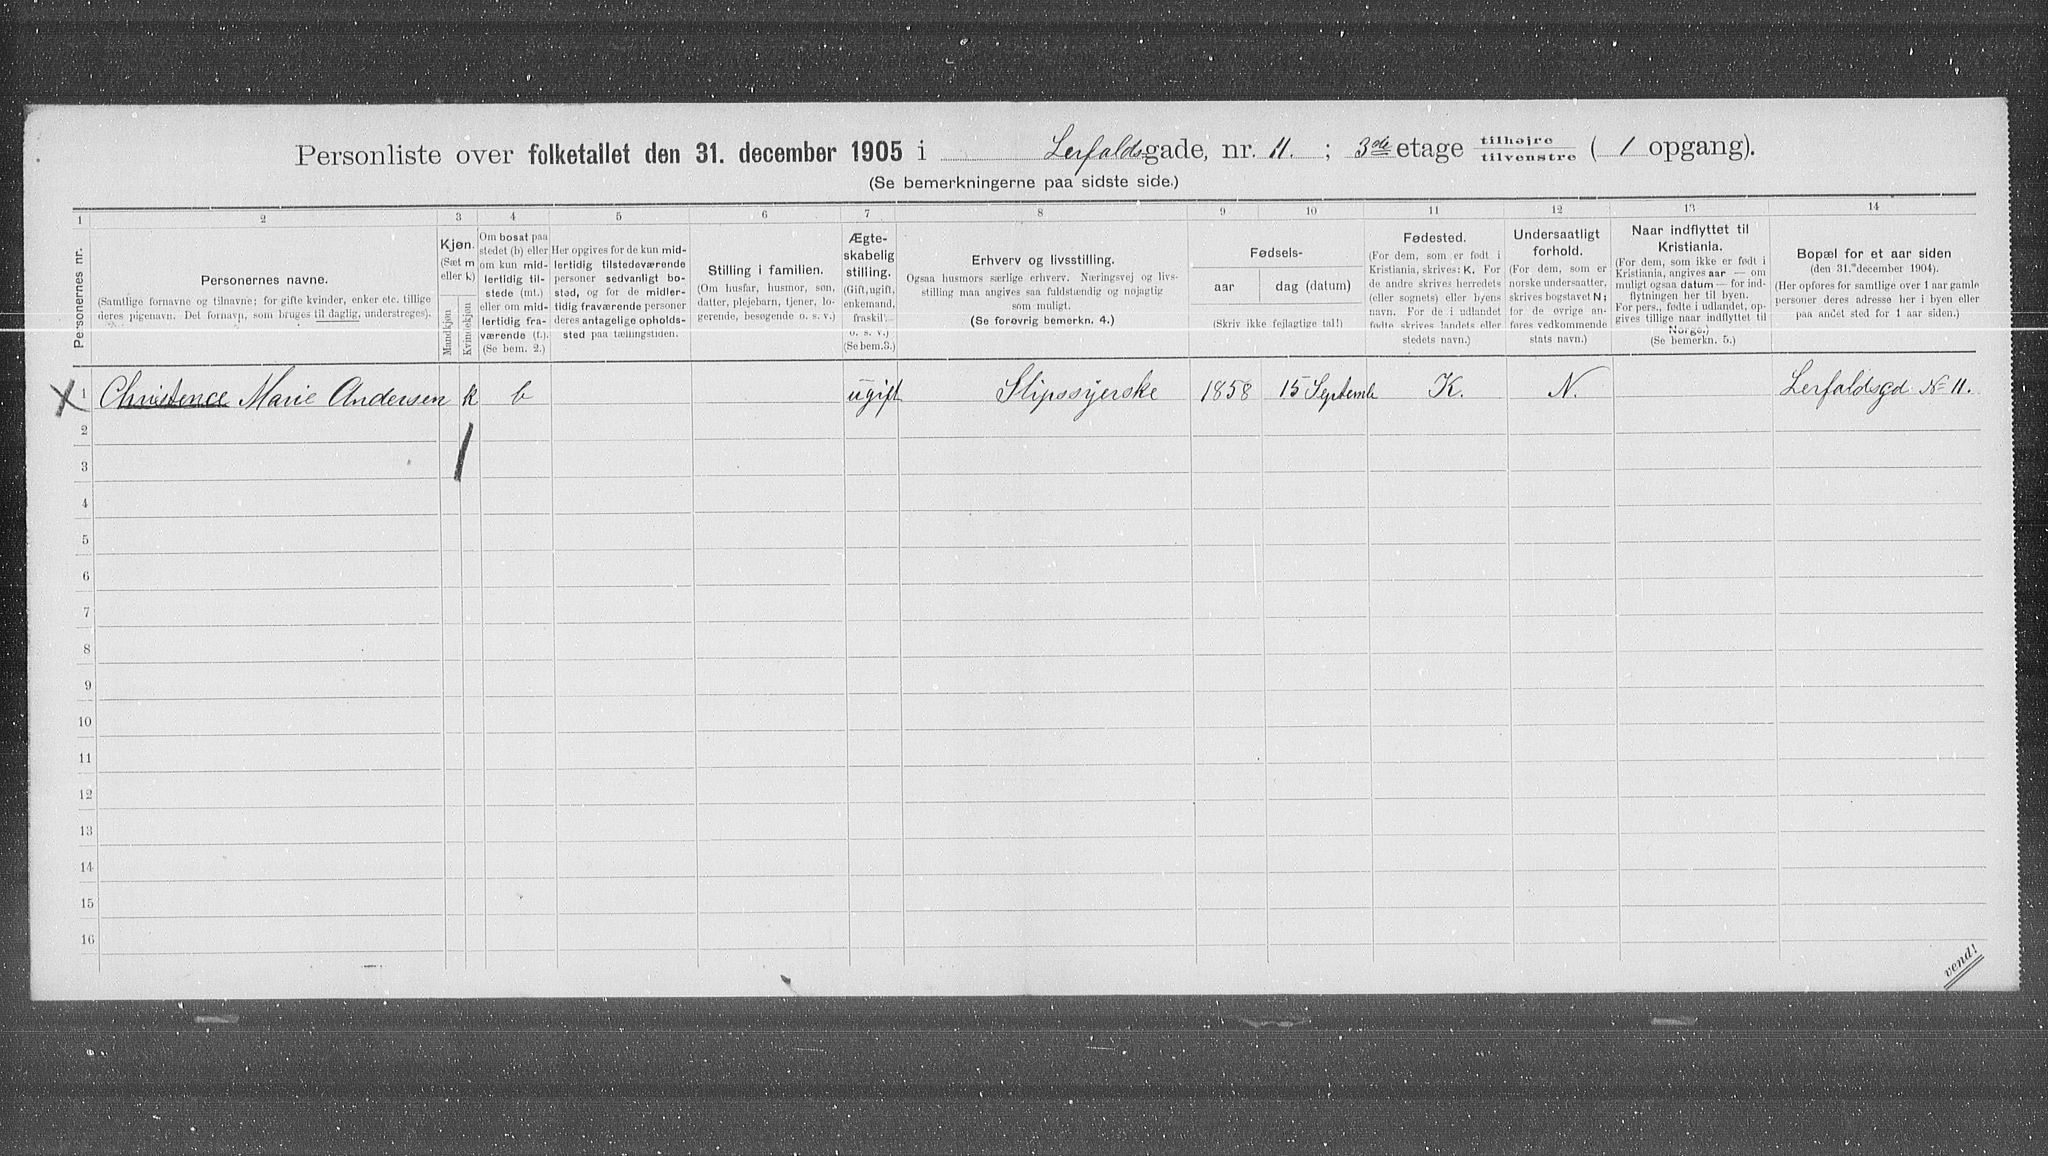 Personliste over folketallet den 31. december 1905 i Lerfaldsgade, nr. 11. ; 3de etage tilhøjre / tilvenstre ( 1 opgang).
(Se bemerkningerne paa sidste side.)
1 2 3 4 5 6 7 8 9 10 11 12 13 14
Personernes nr.
Personernes navne.
(Samtlige fornavne og tilnavne; for gifte kvinder, enker etc. tillige
deres pigenavn. Det fornavn, som bruges til daglig, understreges).
Kjøn.
(Sæt m
eller k.)
Mandkjøn
Kvindekjøn.
Om bosat paa
stedet (b) eller
om kun mid-
lertidig til-
stede (mt.)
eller om mid-
lertidig fra-
værende (f.).
(Se bem. 2.)
Her opgives for de kun mid-
lertidig tilstedeværende
personer sedvanligt bo-
sted, og for de midler-
tidig fraværende personer
deres antagelige ophold-
sted paa tællingstiden.
Stilling i familien.
(Om husfar, husmor, søn,
datter, plejebarn, tjener, lo-
gerende, besøgende o. s. v.)
Ægte-
skabelig
stilling.
(Gift, ugift,
enkemand,
fraskilt
o. s. v.)
(Se bem.3.)
Erhverv og livsstilling.
Ogsaa husmors særlige erhverv. Næringsvej og livs-
stilling maa angives saa fuldstændig og nøjagtig
som muligt.
(Se forøvrig bemerkn. 4.)
Fødsels-
aar
dag (datum)
(Skriv ikke fejlagtige tal!)
Fødested.
(For dem, som er født i
Kristiania, skrives: K. For
de andre skrives herredets
(eller sognets) eller byens
navn. For de i udlandet
fødte skrives landets eller
stedets navn.)
Undersaatligt
forhold.
(For dem, som er
norske undersaatter,
skrives bogstavet N;
for de øvrige an-
føres vedkommende
stats navn.)
Naar indflyttet til
Kristiania.
(For dem, som ikke er født i
Kristiania, angives aar — om
muligt ogsaa datum — for ind-
flytningen her til byen.
For pers., fødte i udlandet, op-
gives tillige naar indflyttet til
Norge.)
(Se bemerkn. 5.)
Bopæl for et aar siden
(den 31. december 1904.)
(Her opføres for samtlige over 1 aar gamle
personer deres adresse her i byen eller
paa andet sted for 1 aar siden.)
X 1 Christence Marie Andersen k b ugift Slipssyerske 1858 15 Septembe K. N. Lerfaldsgd No 11.
2
3
4
5
6
7
8
9
10
11
12
13
14
15
16
vend!